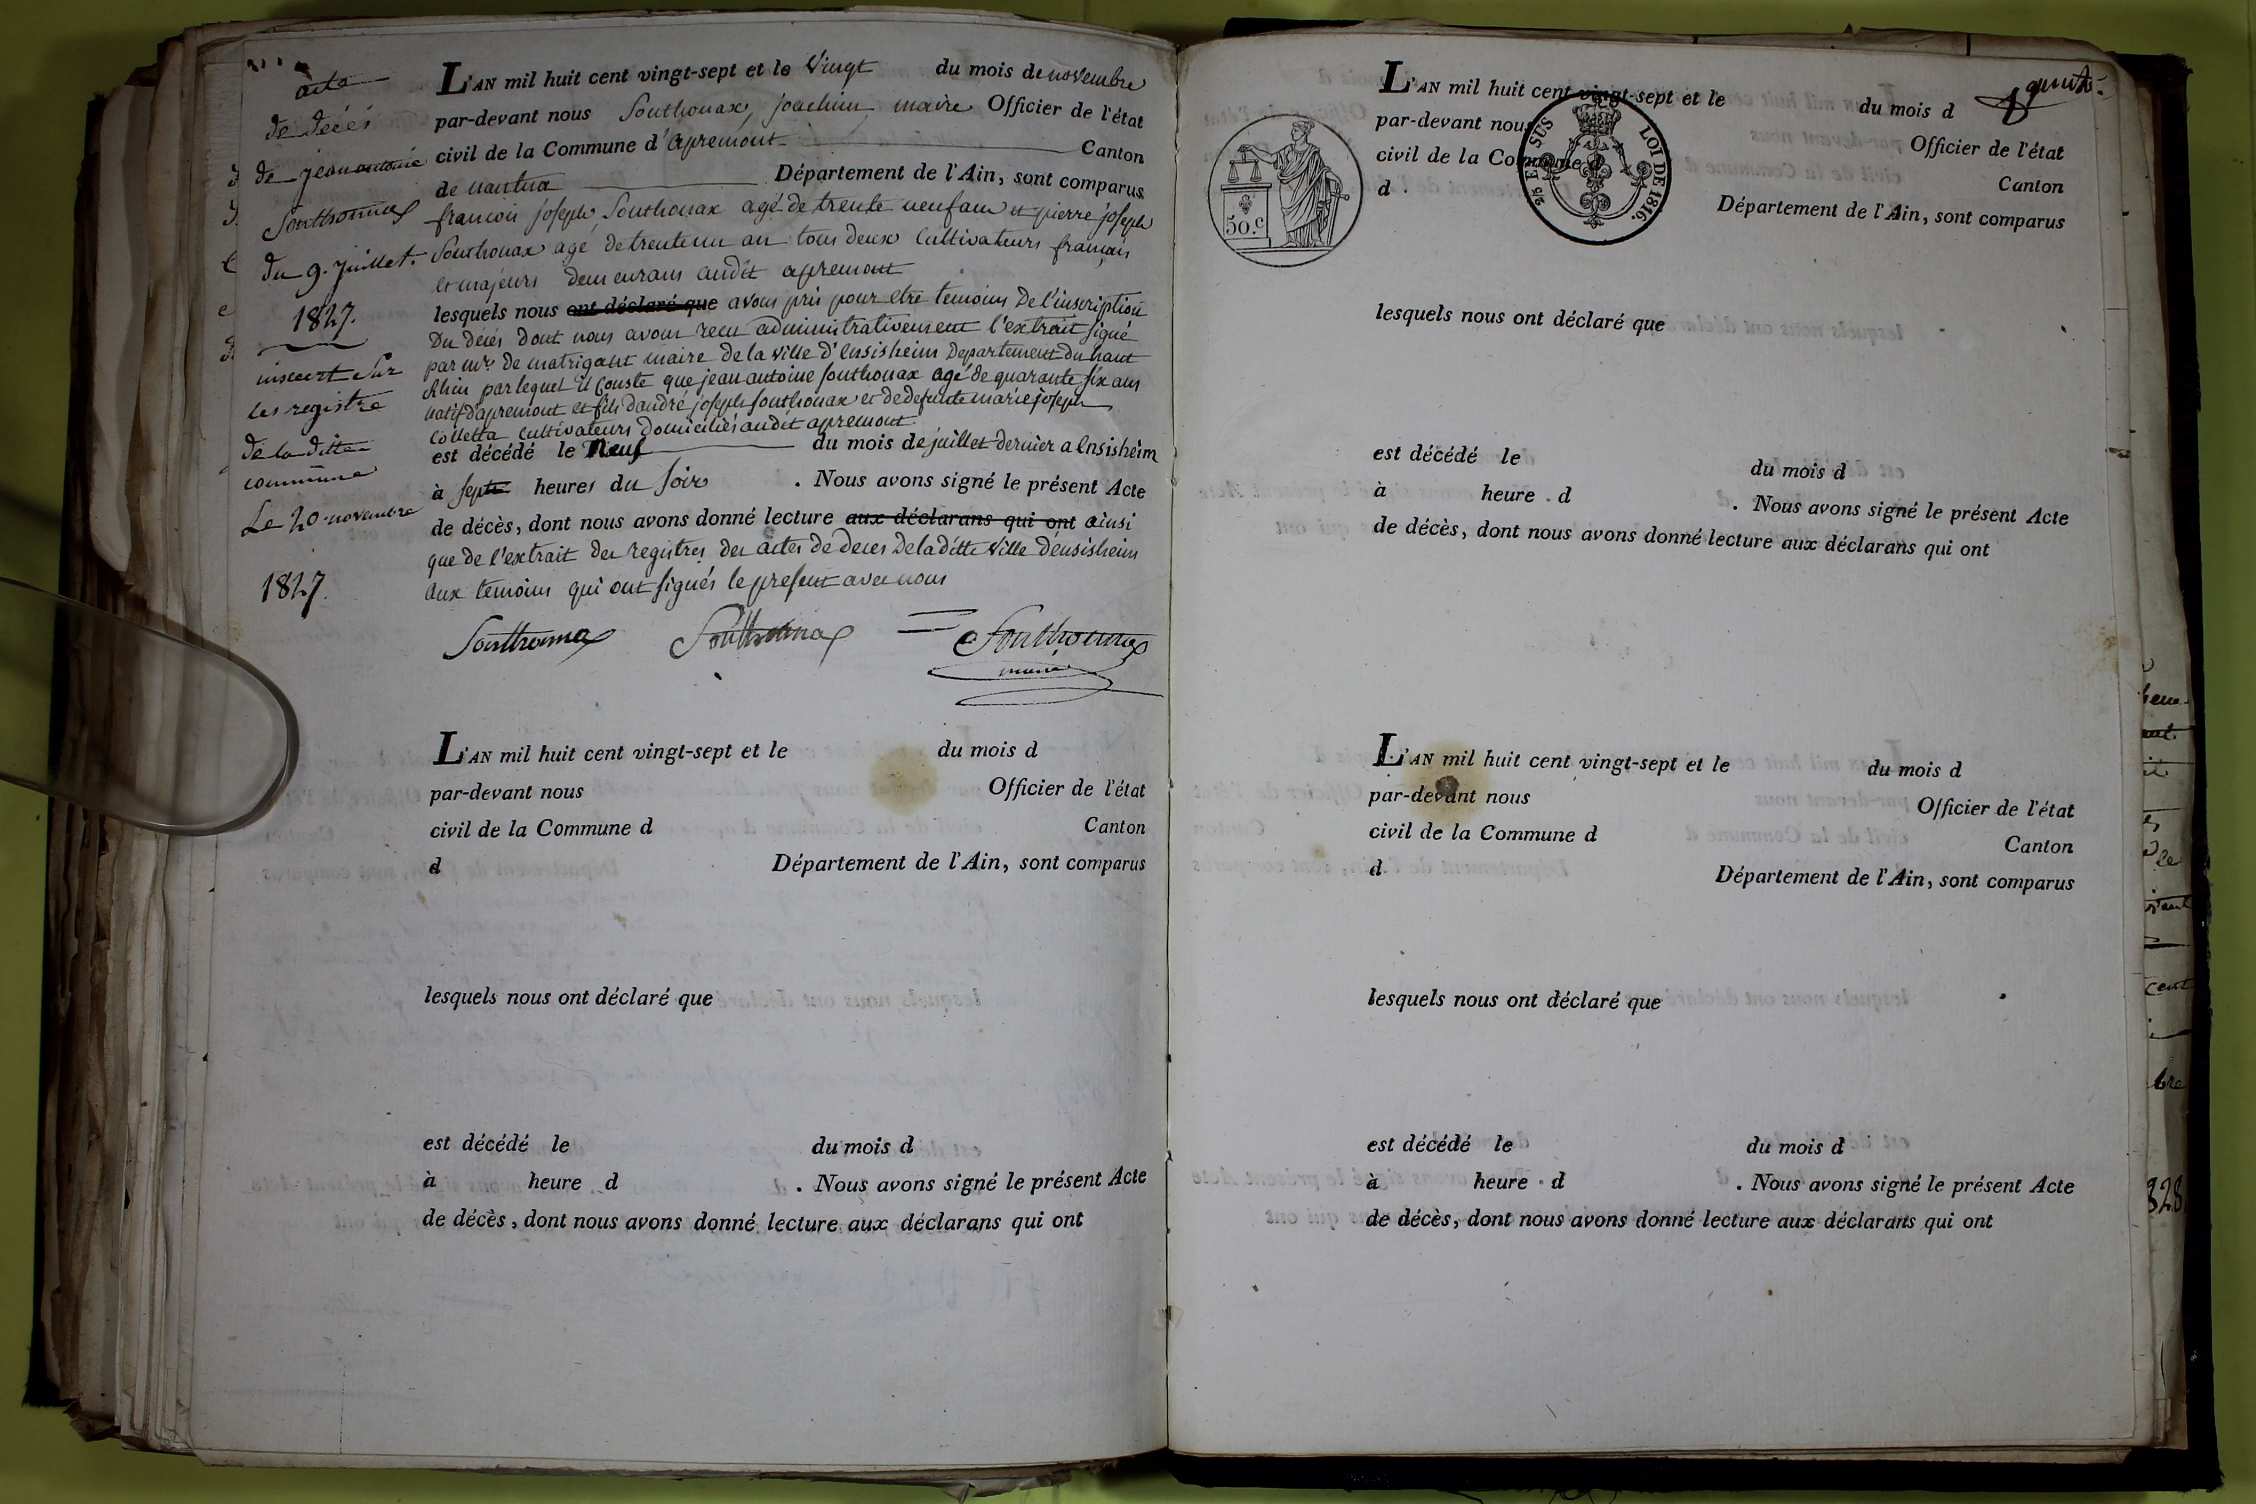 acte
de décés
de jean antoine
Sonthonnax
du 9. juillet.
1827.
inscrit sur
les registre
de la ditte
commune
Le 20 novembre
1827.
L'AN mil huit cent vingt-sept et le vingt du mois de novembre
par-devant nous Sonthonax, joachim maire Officier de l'état
civil de la Commune d'apremont Canton
de nantua Département de l'Ain, sont comparus
francois joseph Sonthonax agé de trente neuf ans et pierre joseph
Sonthonax agé de trente un an tous deux Cultivateurs français
et majeurs demeurans audit apremont
lesquels nous ont déclaré que avons pris pour etre temoins De l'inscription
Du décés dont nous avons recu administrativement l'extrait signé
par mr. de matrigant maire de la ville d'Ensisheim Departement du haut
Rhin par lequel il Conste que jean antoine sonthonax agé de quarante six ans
natif d'apremont et fils d'andré joseph sonthonax et de defunte marie joseph
Colletta Cultivateurs Domiciliés audit apremont
est décédé le Neuf du mois de juillet dernier a Ensisheim
à sept heures du soir . Nous avons signé le présent Acte
de décès, dont nous avons donné lecture aux déclarans qui ont ainsi
que de l'extrait des registres des actes de deces De la ditte Ville d'ensisheim
aux temoins qui ont signés le present avec nous
Sonthonnax Sonthonnax Sonthonnax
maire
L'AN mil huit cent vingt-sept et le du mois d
par-devant nous Officier de l'état
civil de la Commune d Canton
d Département de l'Ain, sont comparus
lesquels nous ont déclaré que
est décédé le du mois d
à heure d . Nous avons signé le présent Acte
de décès, dont nous avons donné lecture aux déclarans qui ont
L'AN mil huit cent vingt-sept et le du mois d
par-devant nous Officier de l'état
civil de la Commune d Canton
d Département de l'Ain, sont comparus
50.c
2/5 EN SUS
LOI DE 1816.
lesquels nous ont déclaré que
est décédé le du mois d
à heure d . Nous avons signé le présent Acte
de décès, dont nous avons donné lecture aux déclarans qui ont
L'AN mil huit cent vingt-sept et le du mois d
par-devant nous Officier de l'état
civil de la Commune d Canton
d Département de l'Ain, sont comparus
lesquels nous ont déclaré que
est décédé le du mois d
à heure d . Nous avons signé le présent Acte
de décès, dont nous avons donné lecture aux déclarans qui ont